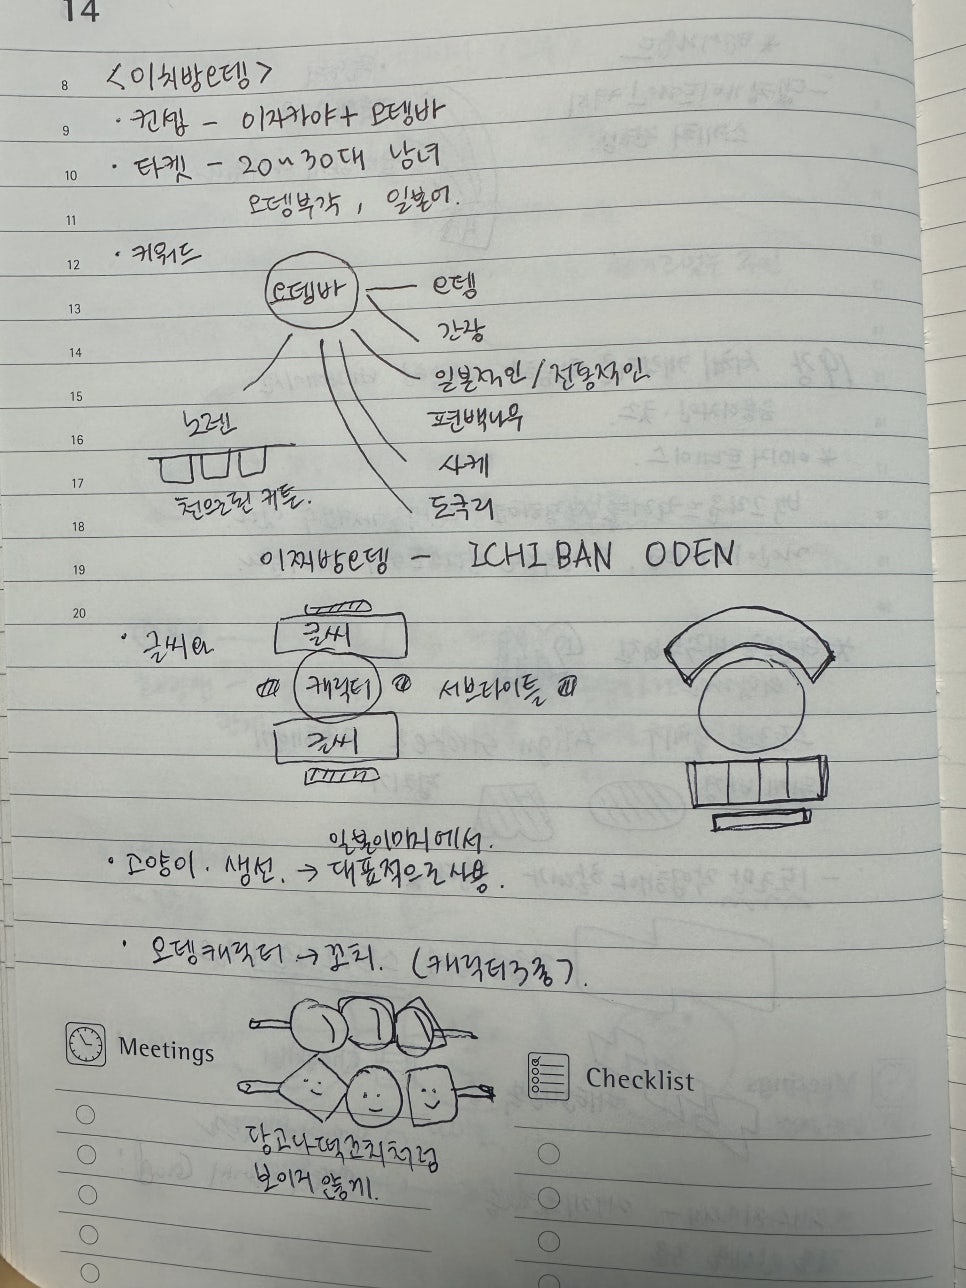 14
8 <이치방오뎅>
9 · 컨셉 - 이자카야 + 오뎅바
10 · 타켓 - 20~30대 남녀
11 오뎅부각, 일본어.
12 · 키워드
13 오뎅바 오뎅
간장
14
15 일본적인/전통적인
16 노렌 편백나무
17 사케
천으로된 커튼. 도쿠리
18
19 이찌방오뎅 - ICHIBAN ODEN
20
· 글씨와 글씨
캐릭터 서브타이틀
글씨
일본이미지에서.
· 고양이. 생선. → 대표적으로 사용.
· 오뎅캐릭터 → 꼬치. (캐릭터3종)
Meetings
Checklist
당고나 떡꼬치처럼
보이지 않게.